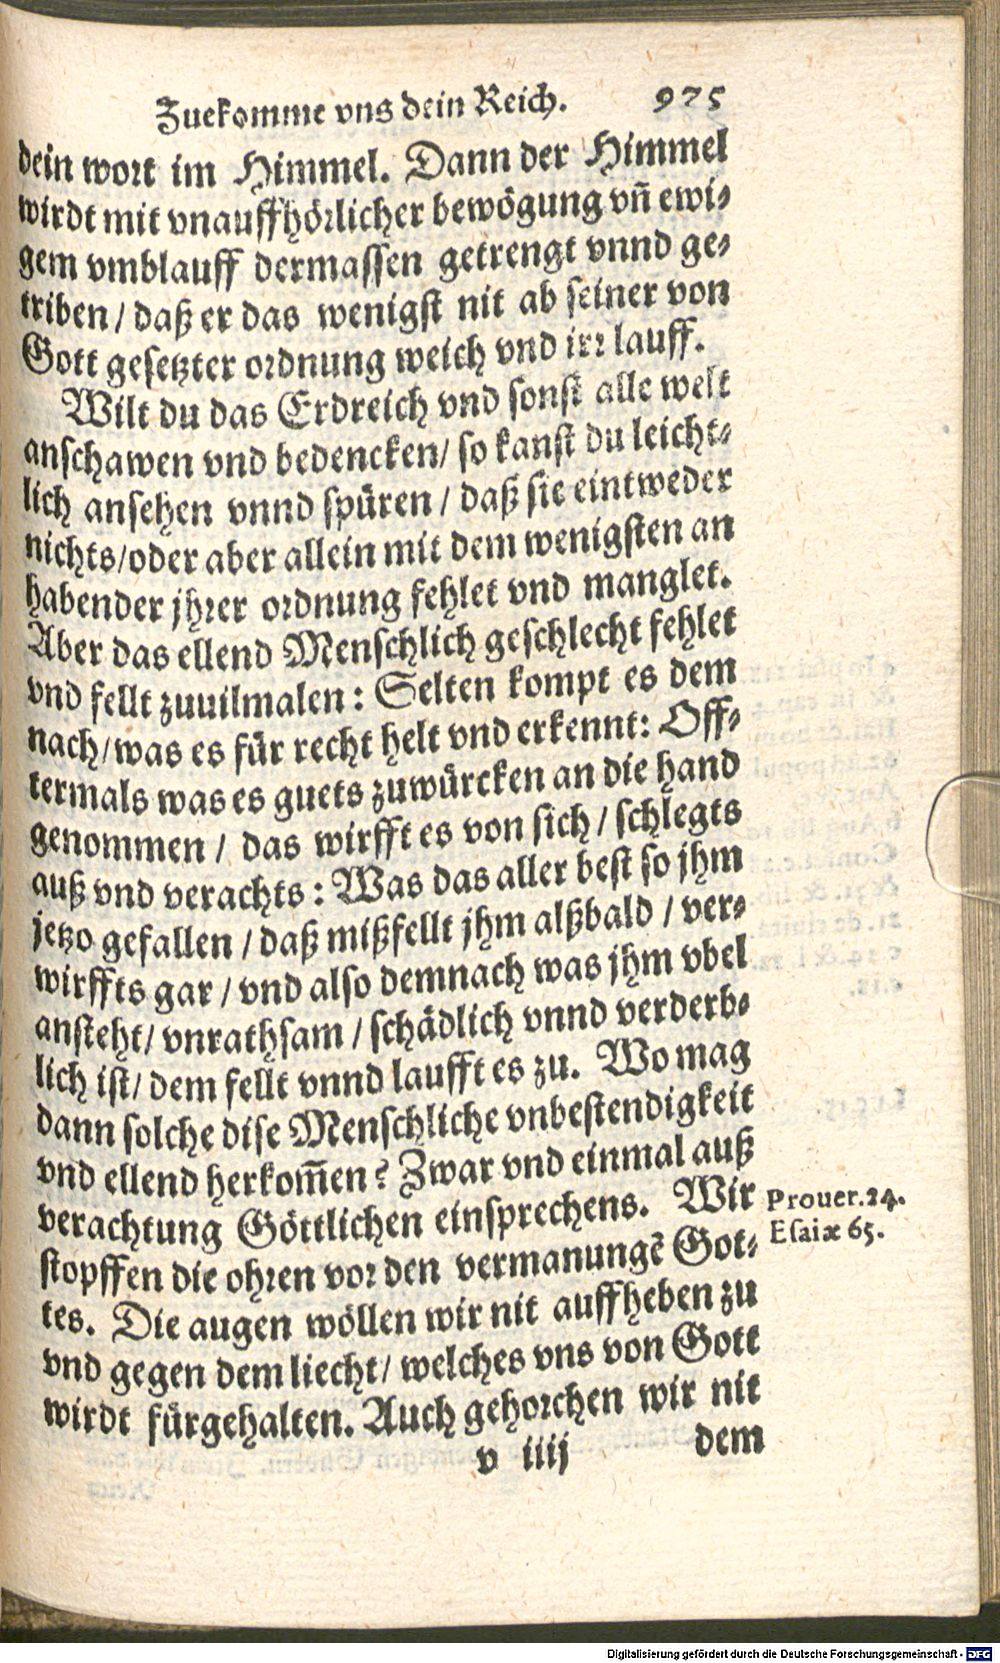 Zuekomme vns dein Reich. 975
dein wort im Himmel. Dann der Himmel
wirdt mit vnauffhörlicher bewögung vñ ewi-
gem vmblauff dermassen getrengt vnnd ge-
triben / daß er das wenigst nit ab seiner von
Gott gesetzter ordnung weich vnd irr lauff.
Wilt du das Erdreich vnd sonst alle welt
anschawen vnd bedencken / so kanst du leicht-
lich ansehen vnnd spüren / daß sie eintweder
nichts / oder aber allein mit dem wenigsten an
habender jhrer ordnung fehlet vnd manglet.
Aber das ellend Menschlich geschlecht fehlet
vnd fellt zuuilmalen : Selten kompt es dem
nach / was es für recht helt vnd erkennt: Off-
termals was es guets zuwürcken an die hand
genommen / das wirfft es von sich / schlegts
auß vnd verachts : Was das aller best so jhm
jetzo gefallen / daß mißfellt jhm alßbald / ver-
wirffts gar / vnd also demnach was jhm vbel
ansteht / vnrathsam / schädlich vnnd verderb-
lich ist / dem fellt vnnd laufft es zu. Wo mag
dann solche dise Menschliche vnbestendigkeit
vnd ellend herkom̃en? Zwar vnd einmal auß
verachtung Göttlichen einsprechens. Wir
stopffen die ohren vor den vermanungẽ Got-
tes. Die augen wöllen wir nit auffheben zu
vnd gegen dem liecht / welches vns von Gott
wirdt fürgehalten. Auch gehorchen wir nit
v iiij dem
Prouer.24.
Esaiæ 65.
Digitalisierung gefördert durch die Deutsche Forschungsgemeinschaft - DFG